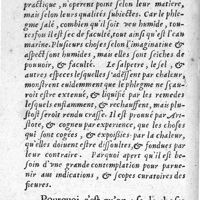 practique, n'operent point selon leur matiere,
mais selon leurs qualités subiectes. Car le phle-
gme salé, combien qu'il soit veu humide, tou-
tesfois il est sec de faculté, tout ainsi qu'est l'eau
marine. Plusieurs choses selon l'imaginatiue &
aspect sont humides, mais elles sont seiches de
pouuoir, & faculté. Le salpetre, le sel, &
autres especes lesquelles s'adressent par chaleur,
monstrent euidemment que le phlegme ne sçau-
roit estre extenué, & liquifié par les remedes
lesquels enflamment, & rechauffent, mais plu-
stost seroit rendu crasse. Il est prouué par Ari-
stote, & cogneu par experience, que les choses
qui sont cogées, & expoissies par la chaleur,
qu'elles doiuent estre dissoultes, & fondues par
leur contraire. Parquoy apert qu'il est be-
soin d'vne grande contemplation pour paruenir
aux indications, & scopes curatoires des
fieures.
Pourquoy n'est qu'on